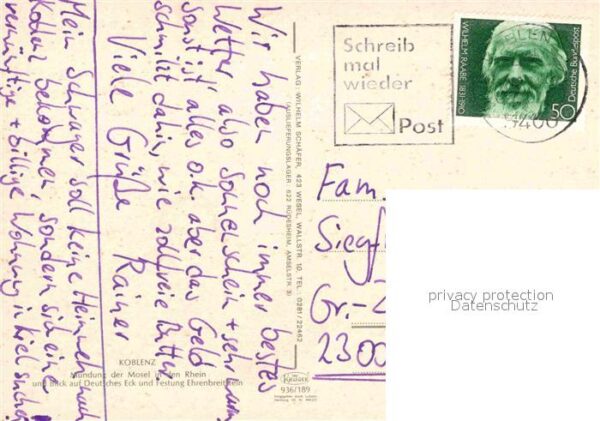 Wir haben noch immer bestes
Wetter also Sonnenschein + sehr warm
Sonst ist alles o.k. aber das Geld
schmilzt dahin, wie zollfreie Butter.
Viele Grüße
Rainer
Mein Schwager soll keine Heimweh nach
Koblenz bekommen sondern sich eine
vernünftige + billige Wohnung in Kiel suchen
KOBLENZ
Mündung der Mosel in den Rhein
und Blick auf Deutsches Eck und Festung Ehrenbreitstein
VERLAG: WILHELM SCHÄFER, 423 WESEL, WALLSTR. 10, TEL.: 0281/22462
(AUSLIEFERUNGSLAGER: 622 RÜDESHEIM, AMSELSTR. 3)
KRÜGER
936/189
Schreib
mal
wieder
Post
WILHELM RAABE 1831-1910
Deutsche Bundespost
50
5400
Fam.
Siegf
Gr.-Z
2300
privacy protection
Datenschutz